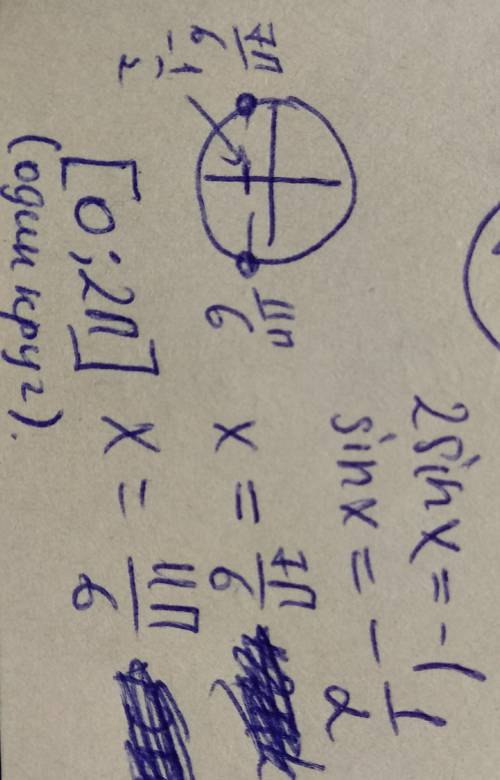 2sinx = -1
sinx = - 1/2
7π/6
- 1/2
11π/6
x = 7π/6
[0; 2π] x = 11π/6
(один круг).